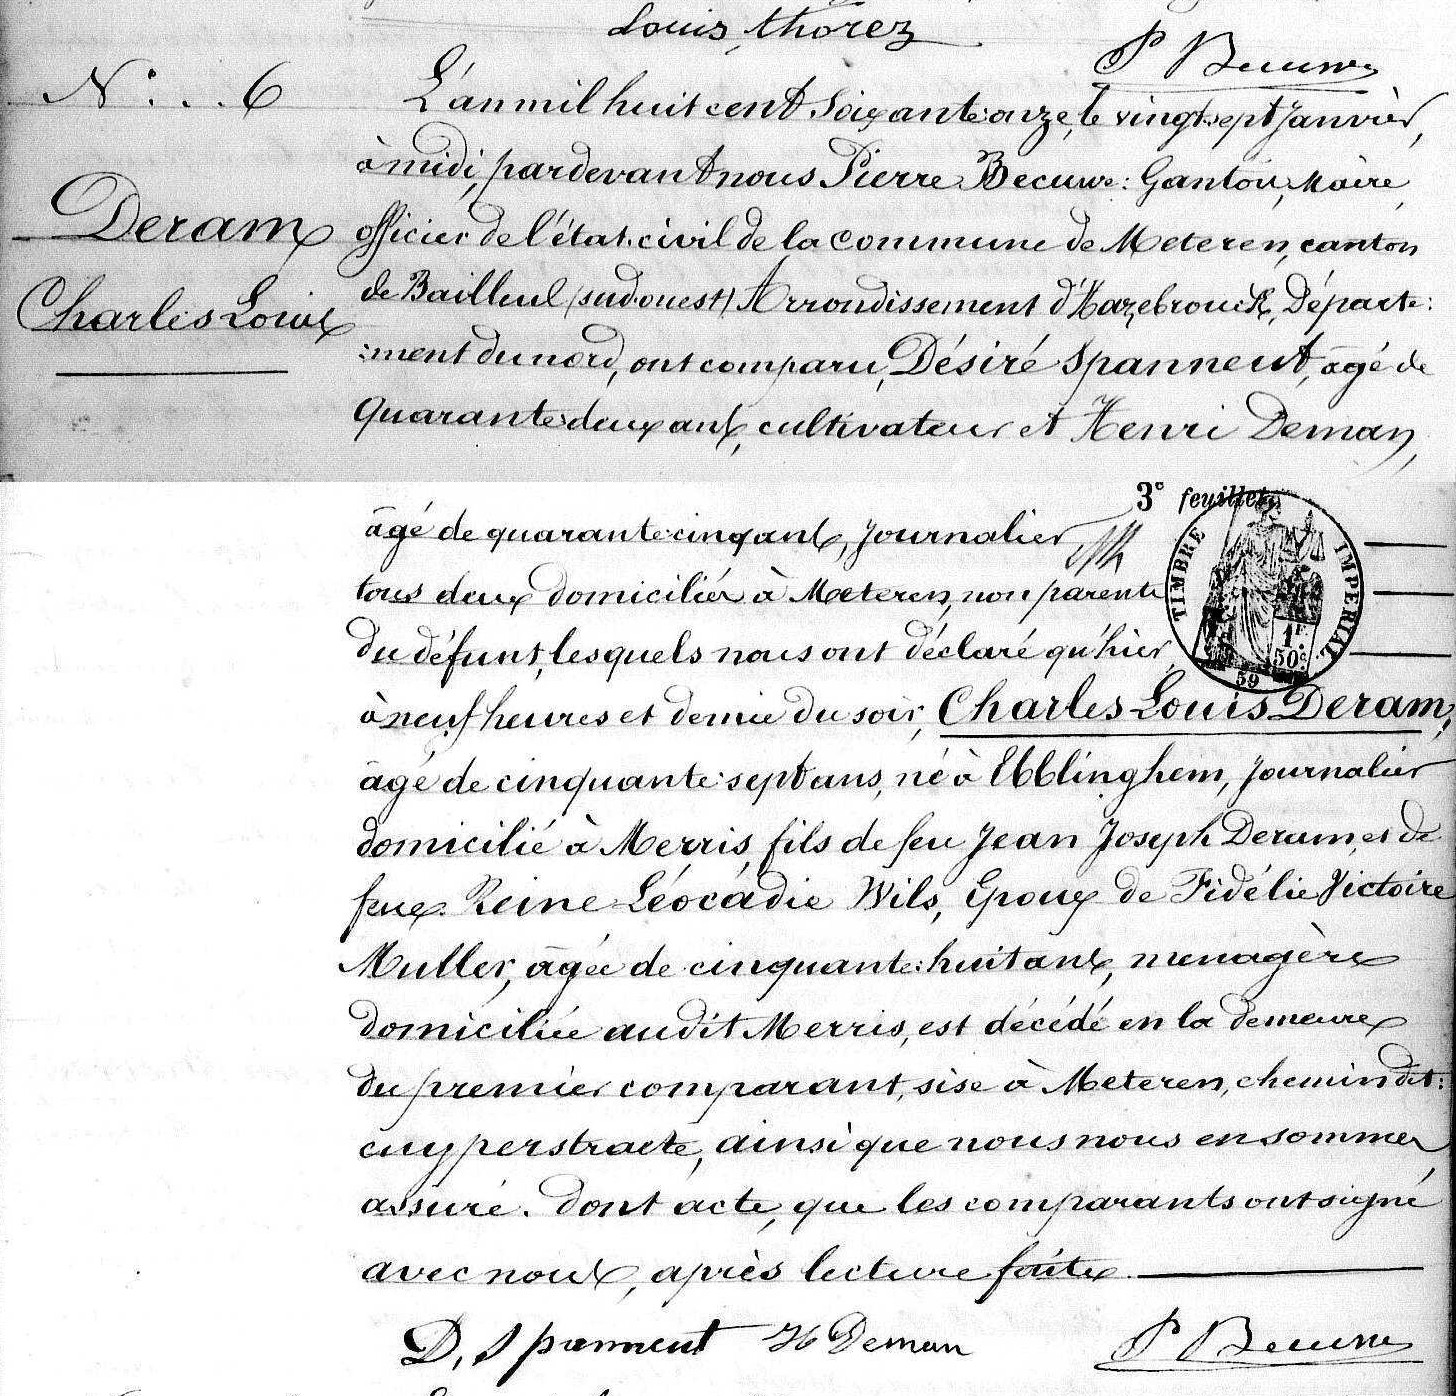 Louis Thorez
P Becuwe
N° 6
L'an mil huit cent Soixante:onze, le vingt-sept Janvier,
à midi, pardevant nous Pierre Becuwe: Gantou, Maire,
officier de l'état-civil de la commune de Meteren, canton
Deram
Charles Louis
de Bailleul (sud-ouest) Arrondissement d'Hazebrouck, Départe:
:ment du nord, ont comparu, Désiré Spanneut, âgé de
quarante:deux ans, cultivateur et Henri Deman,
3e feuillet
âgé de quarante:cinq ans, journalier
TIMBRE IMPERIAL
1F 50c
59
tous deux domiciliés à Meteren, non parents
du défunt, lesquels nous ont déclaré qu'hier,
à neuf heures et demie du soir, Charles Louis Deram,
âgé de cinquante:sept ans, né à Ebblinghem, journalier
domicilié à Merris, fils de feu Jean Joseph Deram, et de
feue Reine Léocadie Wils, Epoux de Fidélie Victoire
Muller, âgée de cinquante:huit ans, menagère
domiciliée audit Merris, est décédé en la demeure
du premier comparant, sise à Meteren, chemin dit:
cuyperstraete, ainsi que nous nous en sommes
assuré. dont acte, que les comparants ont signé
avec nous, après lecture faite.
D. Spanneut H Deman P Becuwe